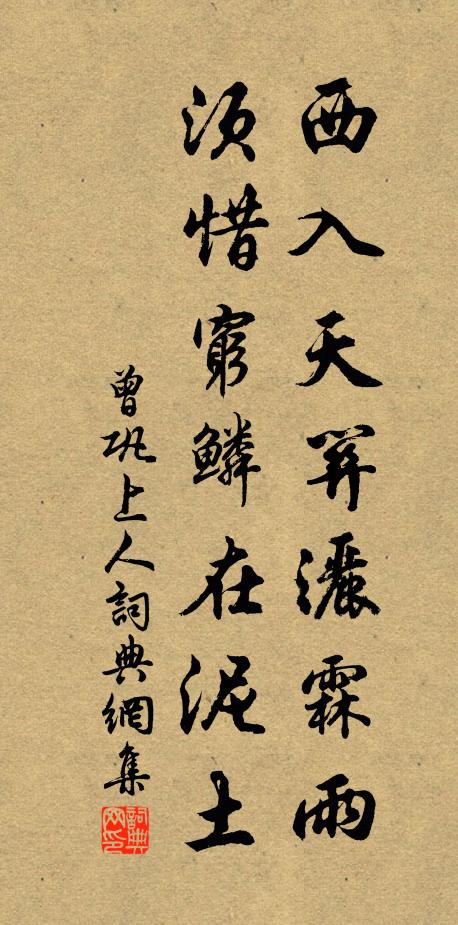 西入天灑霖雨
須惜窮鱗在泥土
曾巩上人詞典網集
詞典網印